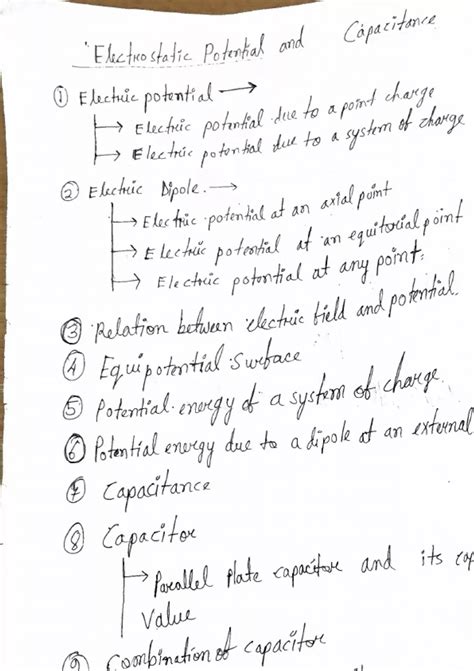 Electrostatic Potential and Capacitance
① Electric potential →
→ Electric potential due to a point charge
→ Electric potential due to a system of charge
② Electric Dipole. →
→ Electric potential at an axial point
→ Electric potential at an equitorial point
→ Electric potential at any point.
③ Relation between electric field and potential.
④ Equipotential Surface
⑤ Potential energy of a system of charge
⑥ Potential energy due to a dipole at an external
⑦ Capacitance
⑧ Capacitor
→ Parallel plate capacitor and its cap
Value
⑨ Coombination of capacitor